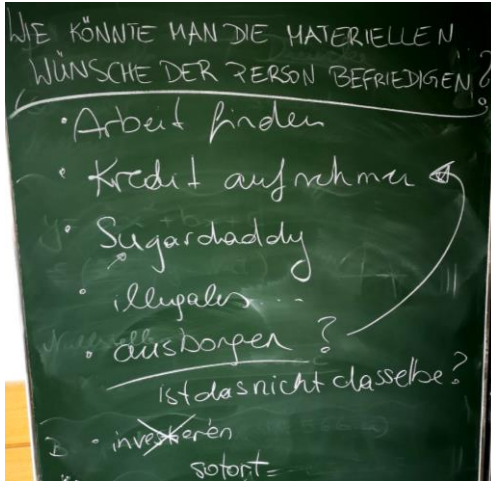 WIE KÖNNTE MAN DIE MATERIELLEN
WÜNSCHE DER PERSON BEFRIEDIGEN?
• Arbeit finden
• Kredit aufnehmen
• Sugardaddy
• illegales ...
• ausborgen ?
ist das nicht dasselbe?
B • investieren
sofort =